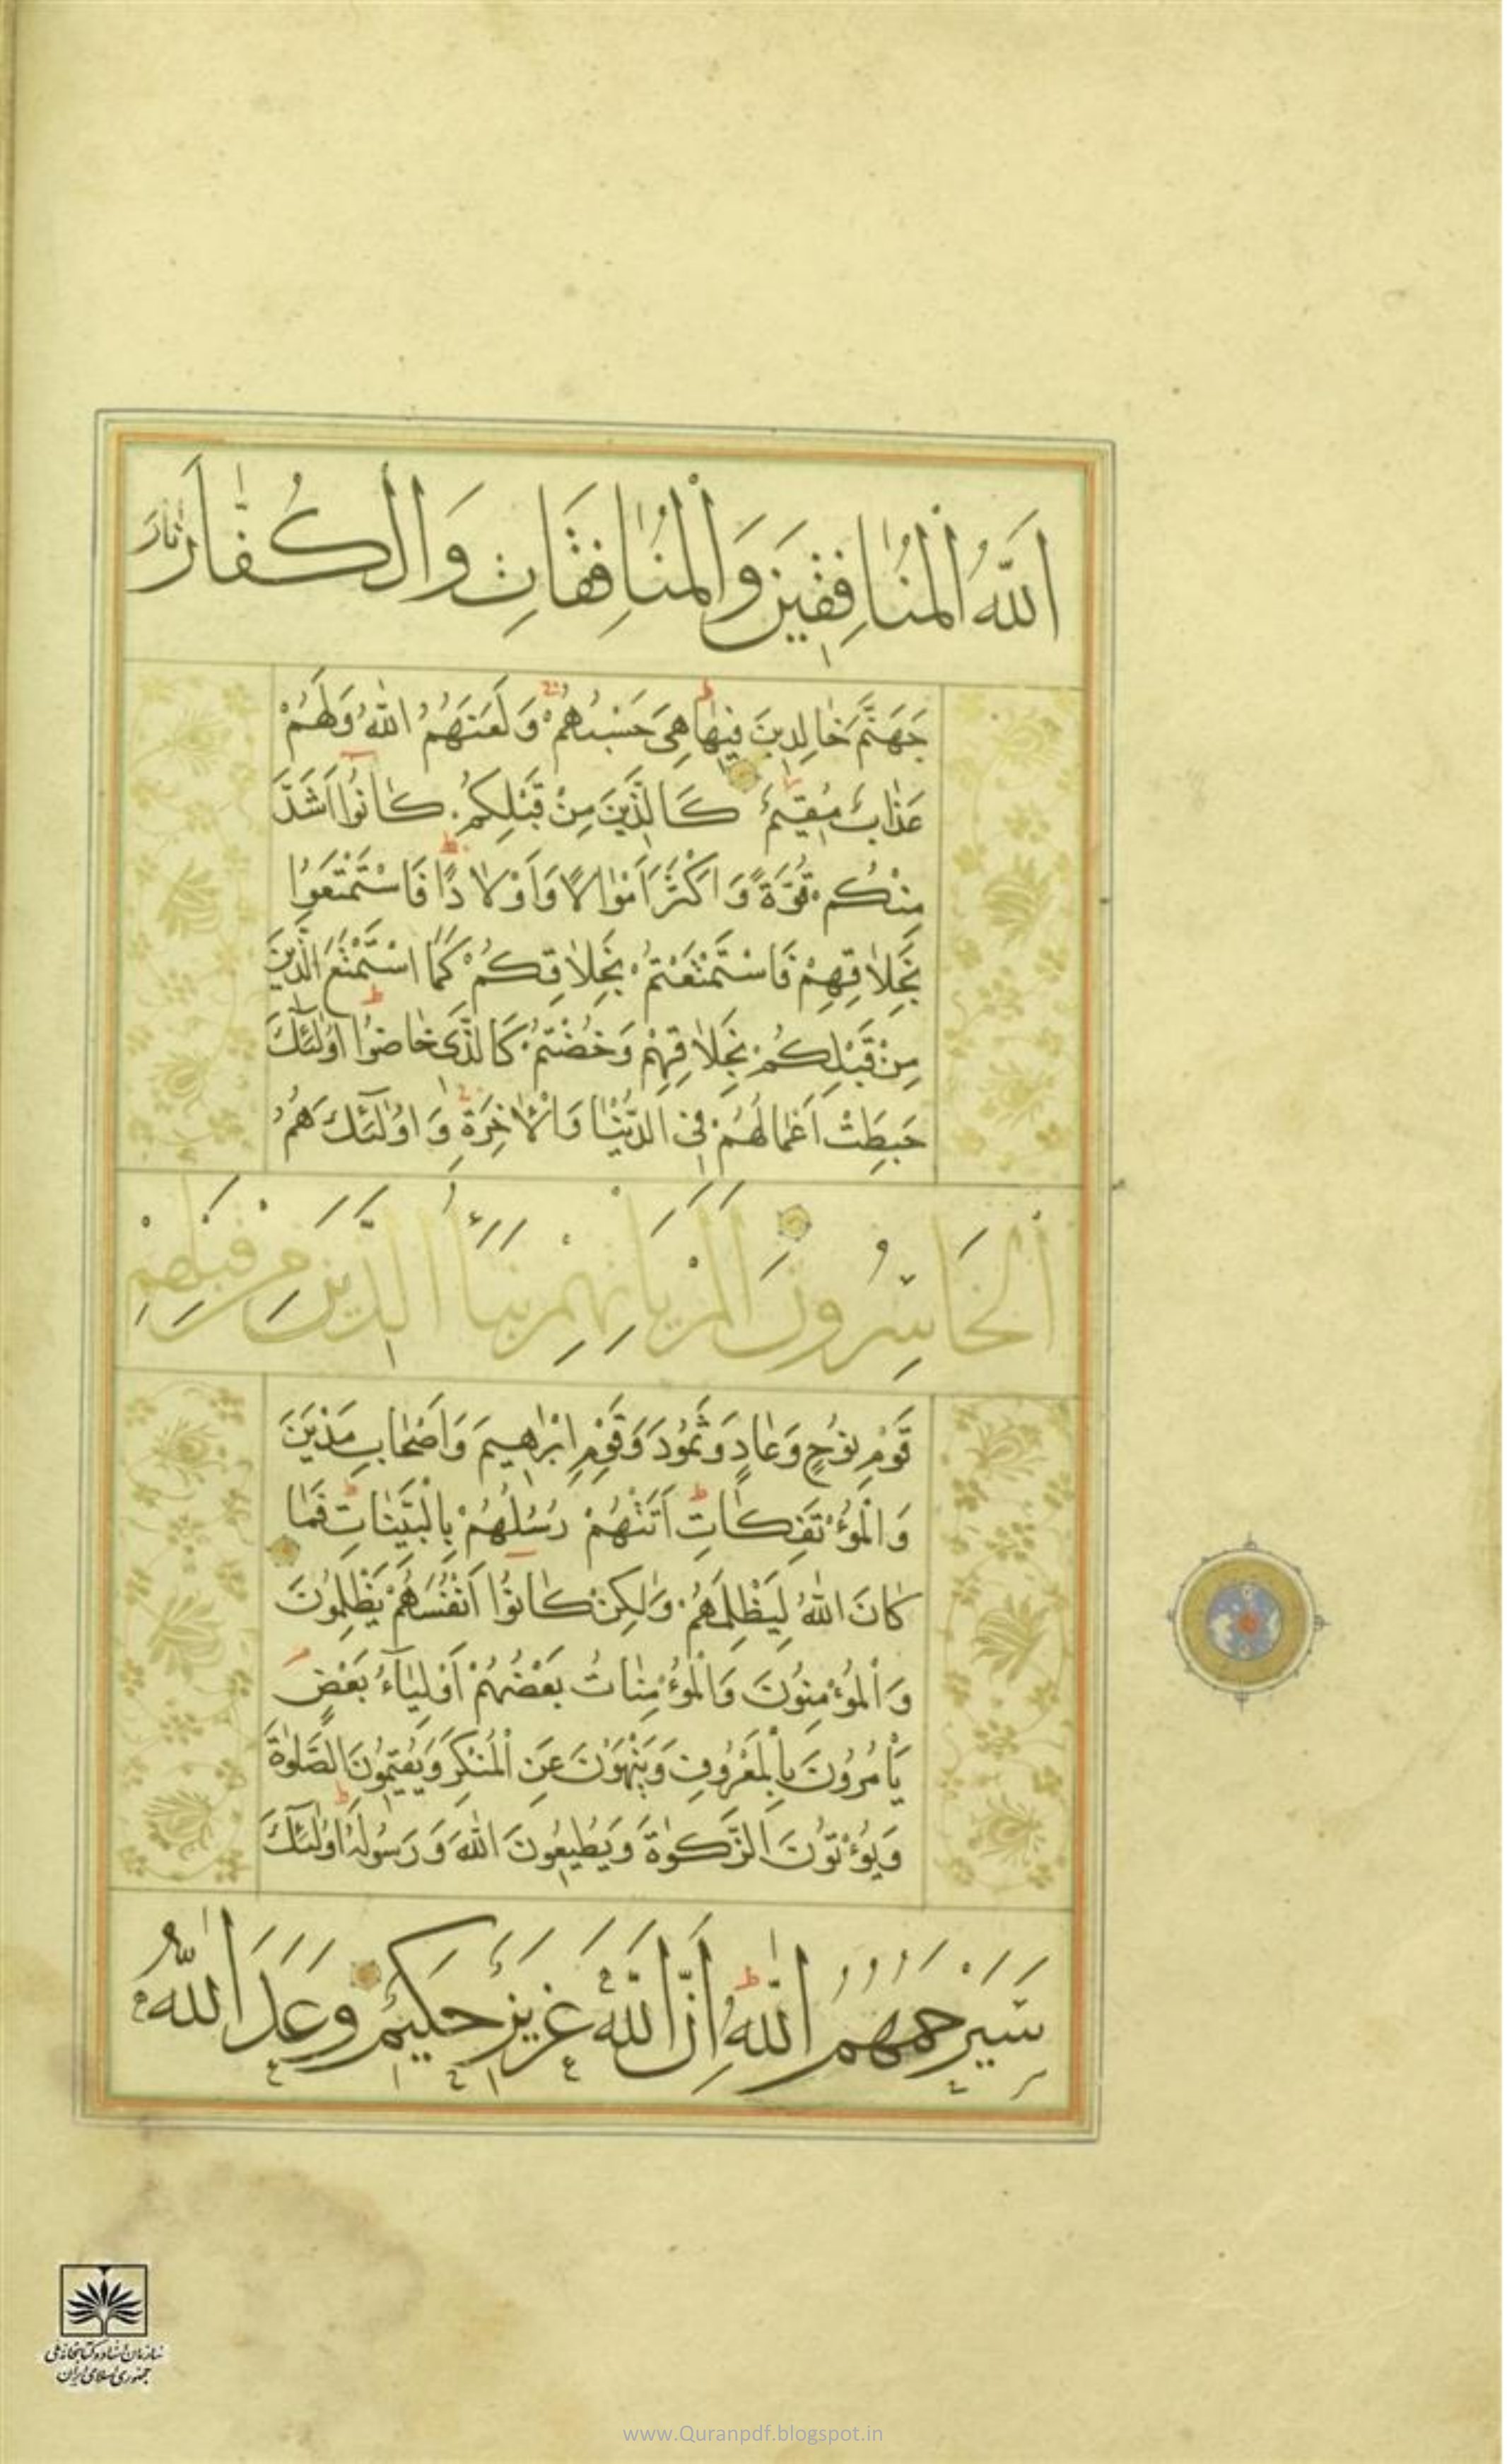 اَللّٰهُ الْمُنٰافِقٖينَ وَالْمُنٰافِقٰاتِ وَالْكُفّٰارَ نٰارَ
جَهَنَّمَ خٰالِدٖينَ فٖيهٰا هِىَ حَسْبُهُمْ وَلَعَنَهُمُ اللّٰهُ وَلَهُمْ
عَذٰابٌ مُقٖيمٌ كَالَّذٖينَ مِنْ قَبْلِكُمْ كٰانُوا اَشَدَّ
مِنْكُمْ قُوَّةً وَاَكْثَرَ اَمْوٰالًا وَاَوْلٰادًا فَاسْتَمْتَعُوا
بِخَلٰاقِهِمْ فَاسْتَمْتَعْتُمْ بِخَلٰاقِكُمْ كَمَا اسْتَمْتَعَ الَّذٖينَ
مِنْ قَبْلِكُمْ بِخَلٰاقِهِمْ وَخُضْتُمْ كَالَّذٖى خٰاضُوا اُولٰٓئِكَ
حَبِطَتْ اَعْمٰالُهُمْ فِى الدُّنْيٰا وَالْاٰخِرَةِ وَاُولٰٓئِكَ هُمُ
الْخٰاسِرُونَ اَلَمْ يَاْتِهِمْ نَبَاُ الَّذٖينَ مِنْ قَبْلِهِمْ
قَوْمِ نُوحٍ وَعٰادٍ وَثَمُودَ وَقَوْمِ اِبْرٰاهٖيمَ وَاَصْحٰابِ مَدْيَنَ
وَالْمُؤْتَفِكٰاتِ اَتَتْهُمْ رُسُلُهُمْ بِالْبَيِّنٰاتِ فَمٰا
كٰانَ اللّٰهُ لِيَظْلِمَهُمْ وَلٰكِنْ كٰانُوا اَنْفُسَهُمْ يَظْلِمُونَ
وَالْمُؤْمِنُونَ وَالْمُؤْمِنٰاتُ بَعْضُهُمْ اَوْلِيٰٓاءُ بَعْضٍ
يَاْمُرُونَ بِالْمَعْرُوفِ وَيَنْهَوْنَ عَنِ الْمُنْكَرِ وَيُقٖيمُونَ الصَّلٰوةَ
وَيُؤْتُونَ الزَّكٰوةَ وَيُطٖيعُونَ اللّٰهَ وَرَسُولَهُ اُولٰٓئِكَ
سَيَرْحَمُهُمُ اللّٰهُ اِنَّ اللّٰهَ عَزٖيزٌ حَكٖيمٌ وَعَدَ اللّٰهُ
سازمان اسناد و کتابخانه ملی
جمهوری اسلامی ایران
www.Quranpdf.blogspot.in